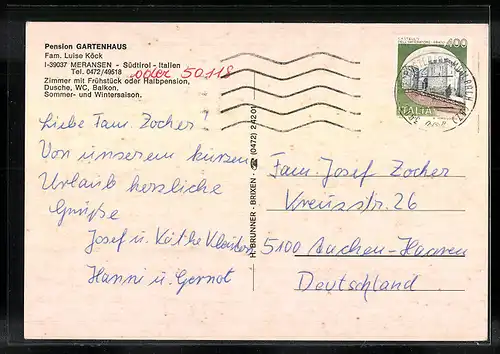 Pension GARTENHAUS
Fam. Luise Köck
I-39037 MERANSEN - Südtirol - Italien
Tel. 0472/49518 oder 50118
Zimmer mit Frühstück oder Halbpension,
Dusche, WC, Balkon.
Sommer- und Wintersaison.
Liebe Fam. Zocher!
Von unserem kurzen
Urlaub herzliche
Grüße
Josef u. Käthe
Hanni u. Gernot
H. BRUNNER - BRIXEN - ☎ (0472) 2 42 01
400
ITALIA
Fam. Josef Zocher
Kreuzstr. 26
5100 Aachen-Haaren
Deutschland